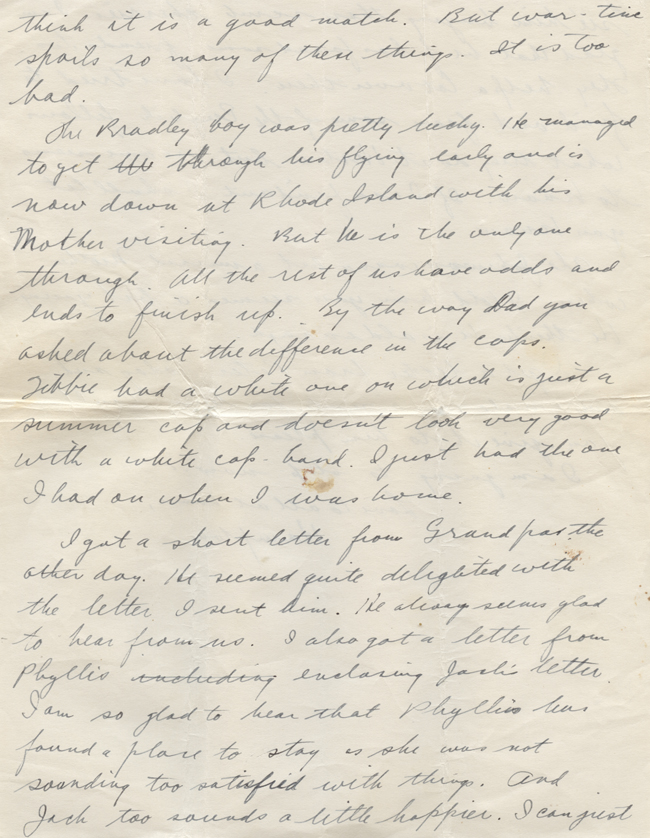 think it is a good match. But war-time
spoils so many of these things. It is too
bad.
The Bradley boy was pretty lucky. He managed
to get through his flying early and is
now down at Rhode Island with his
Mother visiting. But he is the only one
through. All the rest of us have odds and
ends to finish up. By the way Dad you
asked about the difference in the caps.
Tibbie had a white one on which is just a
summer cap and doesn't look very good
with a white cap-band. I just had the one
I had on when I was home.
I got a short letter from Grandpa the
other day. He seemed quite delighted with
the letter I sent him. He always seems glad
to hear from us. I also got a letter from
Phyllis including enclosing Jack's letter.
I am so glad to hear that Phyllis has
found a place to stay as she was not
sounding too satisfied with things. And
Jack too sounds a little happier. I can just